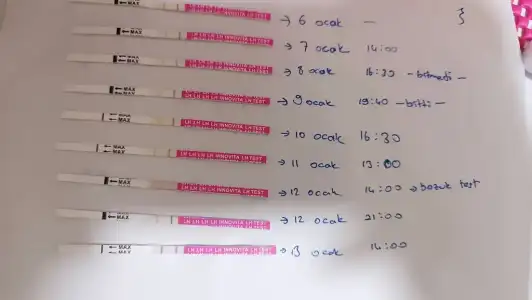 MAX LH LH LH LH INNOVITA LH TEST → 6 ocak —
MAX LH LH LH LH INNOVITA LH TEST → 7 ocak 14:00
MAX LH LH LH LH INNOVITA LH TEST → 8 ocak 16:30 - bitmedi -
MAX LH LH LH LH INNOVITA LH TEST → 9 ocak 19:40 - bitti -
MAX LH LH LH LH INNOVITA LH TEST → 10 ocak 16:30
MAX LH LH LH LH INNOVITA LH TEST → 11 ocak 13:00
MAX LH LH LH LH INNOVITA LH TEST → 12 ocak 14:00 → bozuk test
MAX LH LH LH LH INNOVITA LH TEST → 12 ocak 21:00
MAX LH LH LH LH INNOVITA LH TEST → 13 ocak 14:00